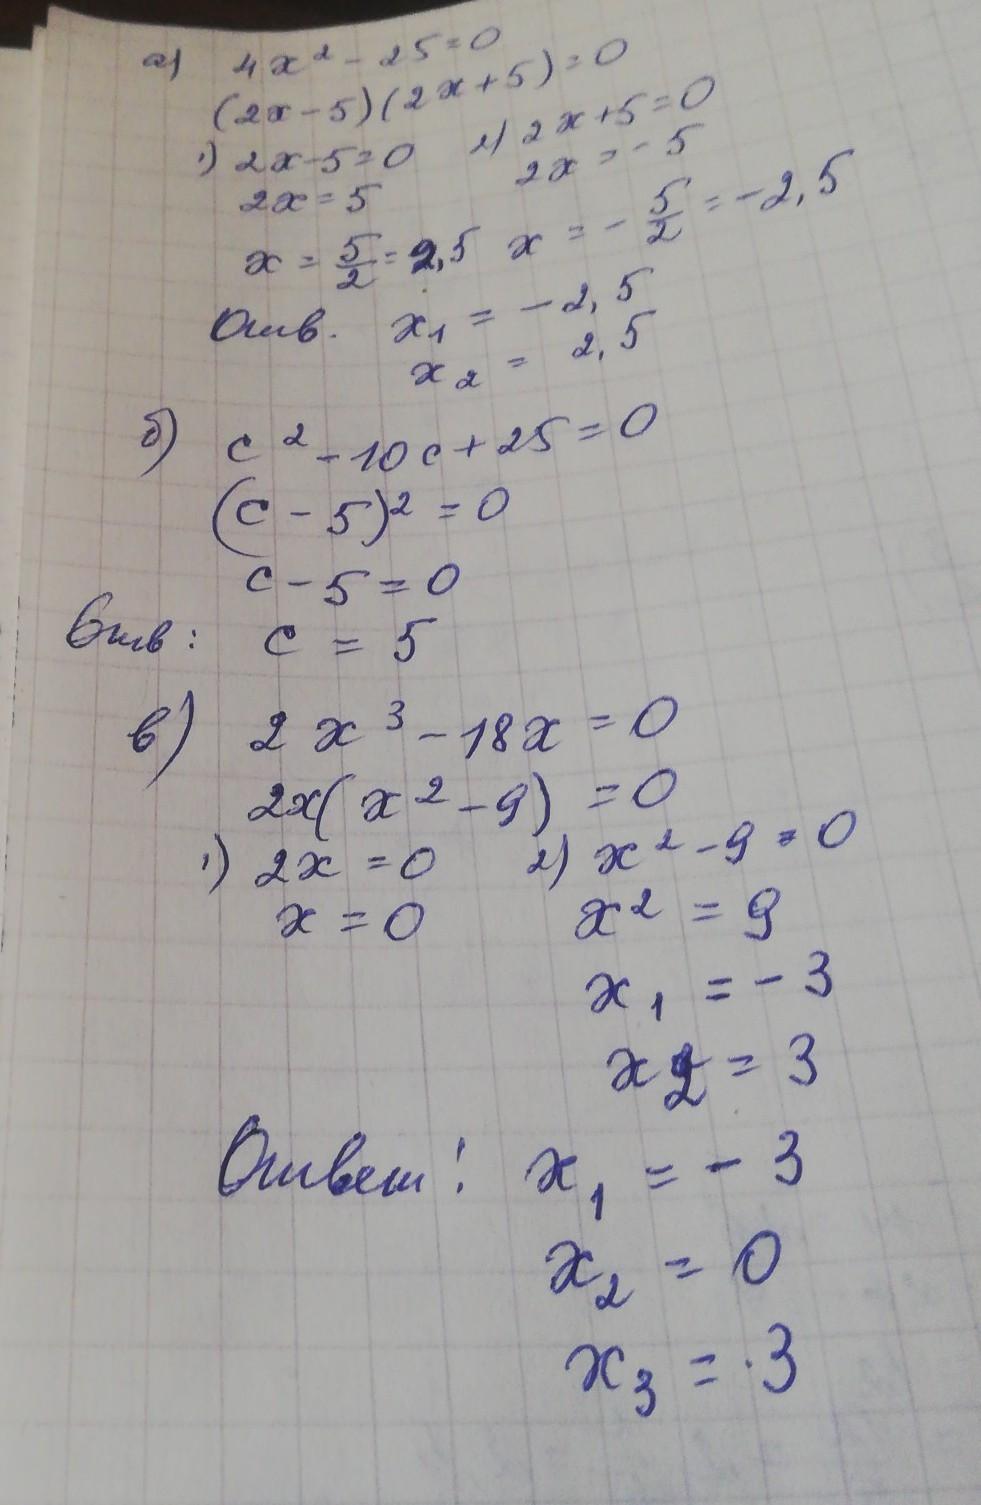 а) 4x² - 25 = 0
(2x - 5)(2x + 5) = 0
1) 2x - 5 = 0 2) 2x + 5 = 0
2x = 5 2x = - 5
x = 5/2 = 2,5 x = - 5/2 = -2,5
Отв. x₁ = - 2,5
x₂ = 2,5
б) c² - 10c + 25 = 0
(c - 5)² = 0
c - 5 = 0
Отв: c = 5
в) 2x³ - 18x = 0
2x(x² - 9) = 0
1) 2x = 0 2) x² - 9 = 0
x = 0 x² = 9
x₁ = - 3
x₂ = 3
Ответ: x₁ = - 3
x₂ = 0
x₃ = 3